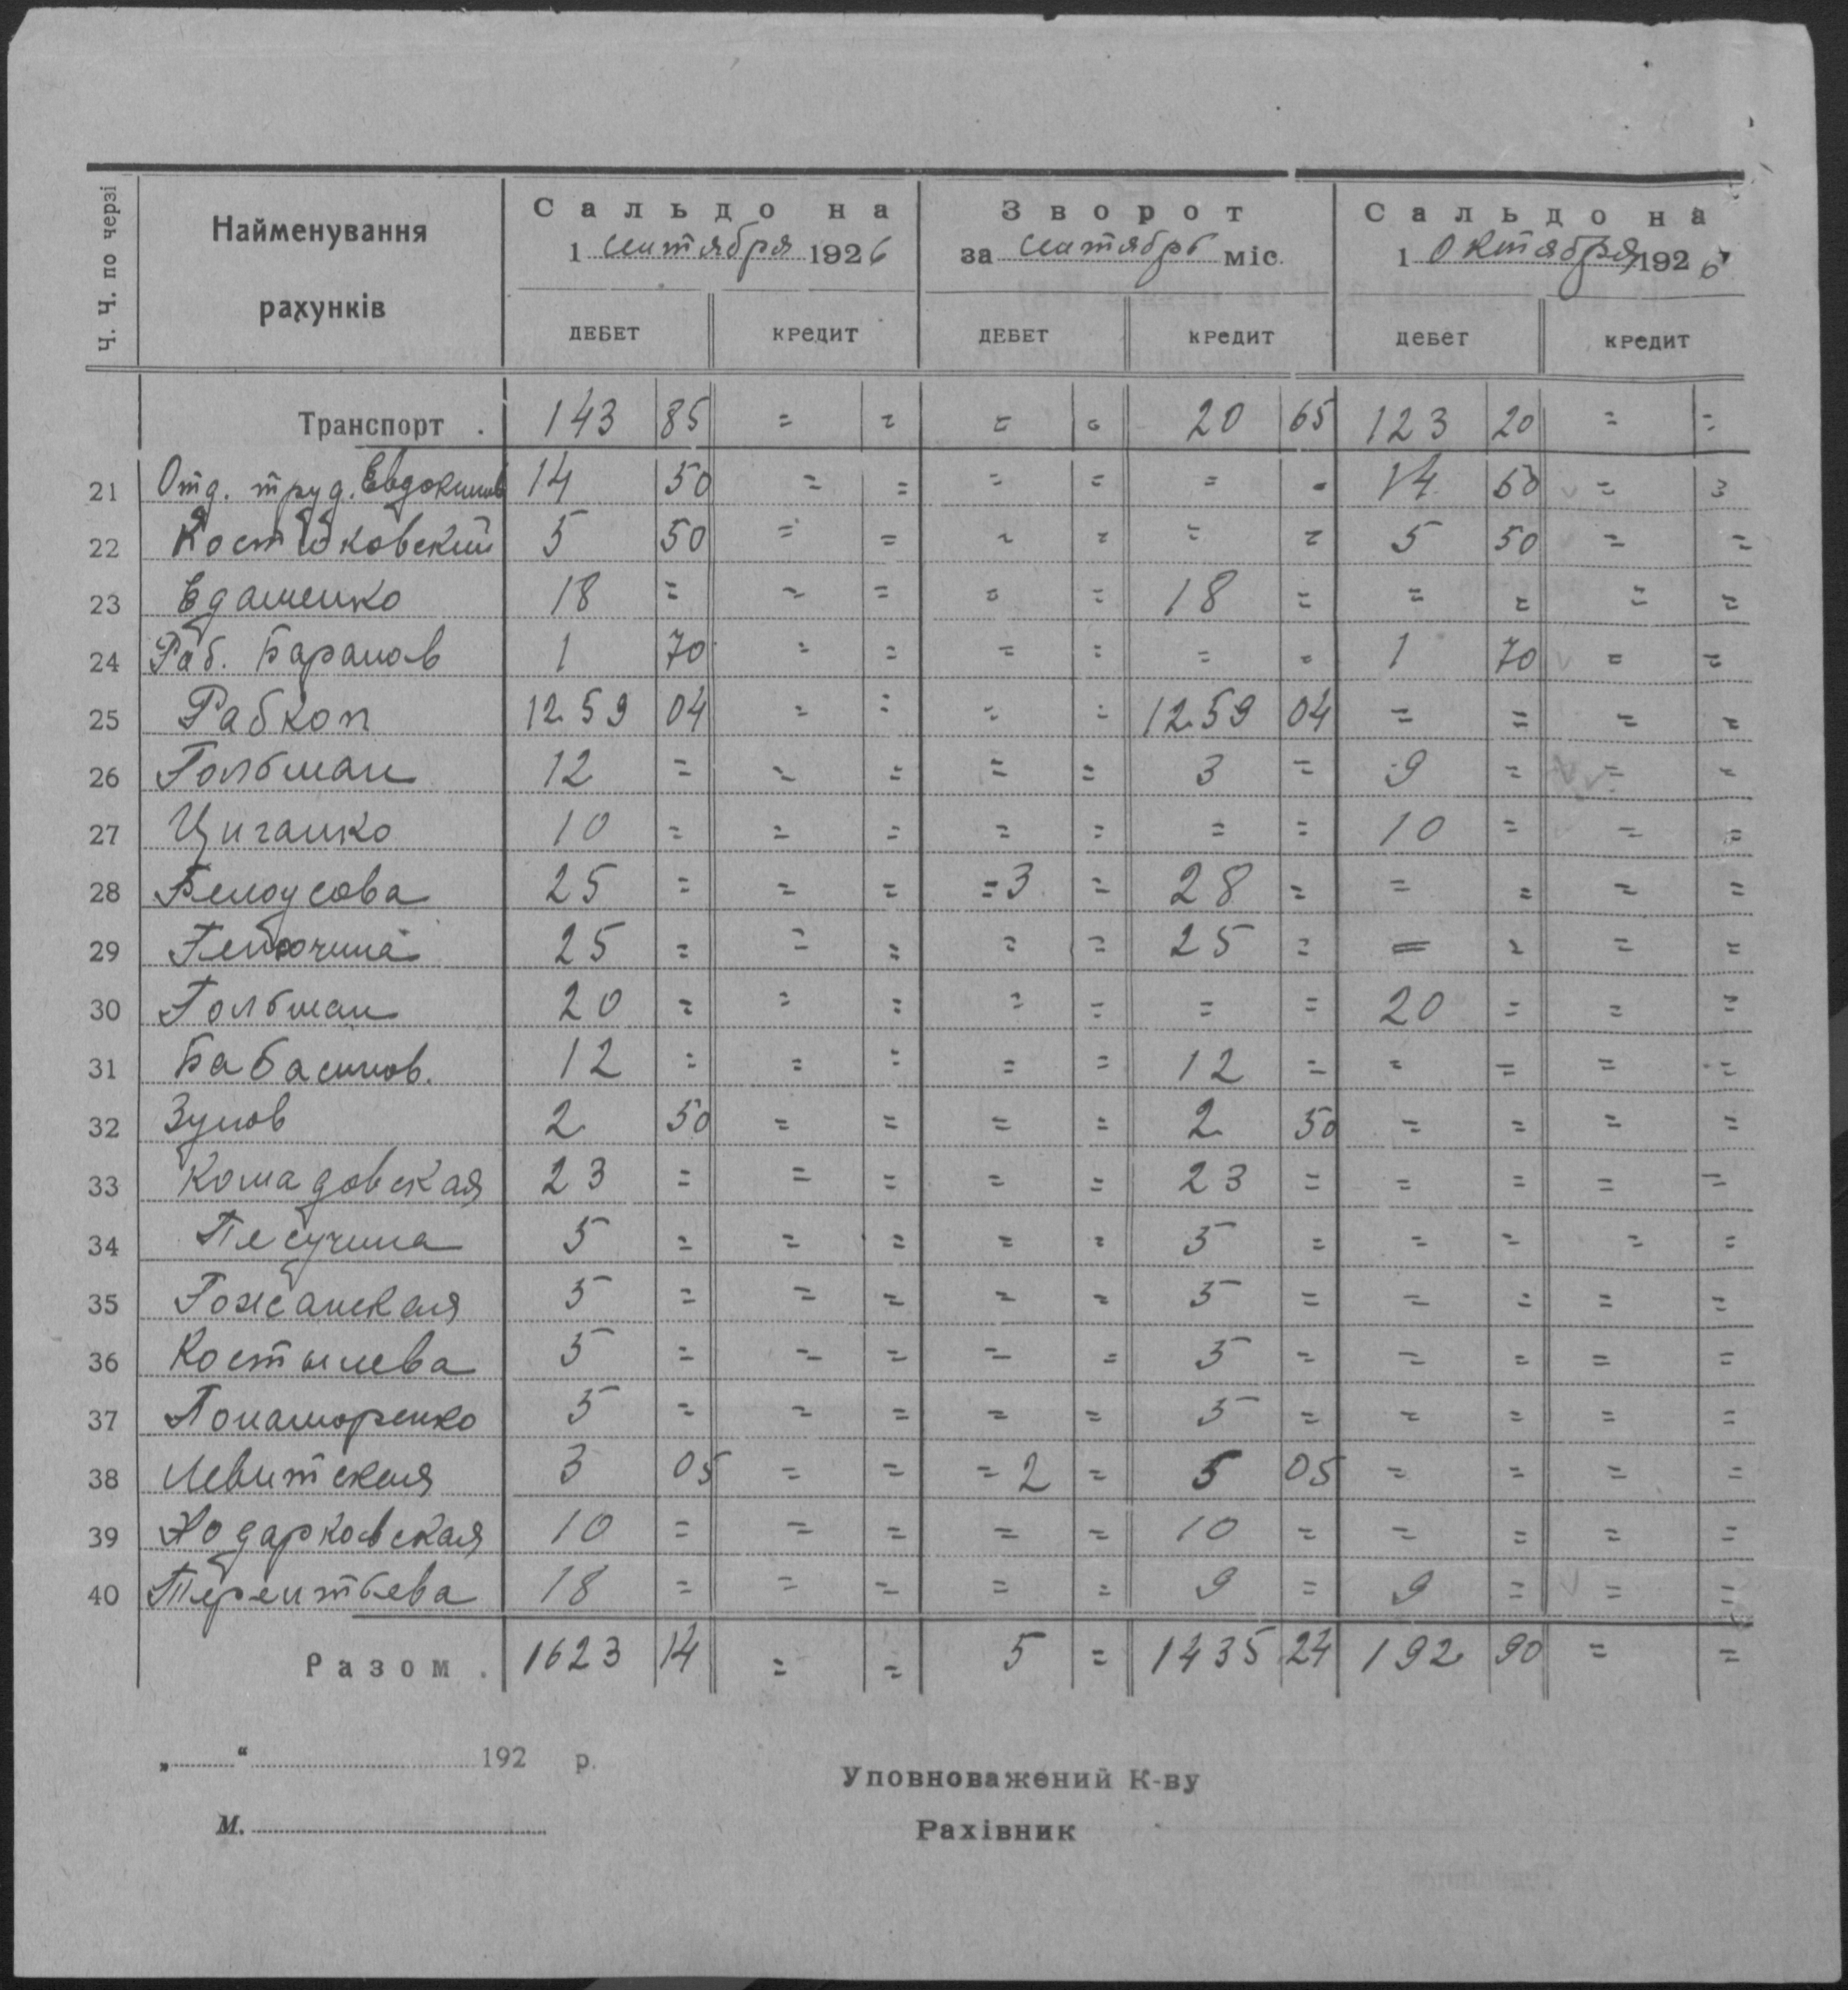 Ч. Ч. по черзі
Найменування рахунків
Сальдо на 1 сентября 1926
Зворот за сентябрь міс.
Сальдо на 1 Октября 1926
ДЕБЕТ КРЕДИТ ДЕБЕТ КРЕДИТ ДЕБЕТ КРЕДИТ
Транспорт . 143 85 = = = = 20 65 123 20 = =
21 Отд. труд. Евдокимов 14 50 = = = = = = 14 50 = =
22 Костюковский 5 50 = = = = = = 5 50 = =
23 Едаменко 18 = = = = = 18 = = = = =
24 Раб. Баранов 1 70 = = = = = = 1 70 = =
25 Рабкоп 1259 04 = = = = 1259 04 = = = =
26 Гольман 12 = = = = = 3 = 9 = = =
27 Циганко 10 = = = = = = = 10 = = =
28 Белоусова 25 = = = = 3 = 28 = = = = =
29 25 = = = = = 25 = = = = =
30 Гольман 20 = = = = = = = 20 = = =
31 12 = = = = = 12 = = = = =
32 Зумов 2 50 = = = = 2 50 = = = =
33 Комадовская 23 = = = = = 23 = = = = =
34 Песучина 5 = = = = = 5 = = = = =
35 Гожанская 5 = = = = = 5 = = = = =
36 Костылева 5 = = = = = 5 = = = = =
37 Понаморенко 5 = = = = = 5 = = = = =
38 Левитская 3 05 = = = 2 = 5 05 = = = =
39 Ходарковская 10 = = = = = 10 = = = = =
40 Терентьева 18 = = = = = 9 = 9 = = =
Разом . 1623 14 = = 5 = 1435 24 192 90 = =
„ “ 192 р.
Уповноважений К-ву
М.
Рахівник